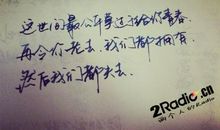 这世间最公平莫过于给你青春
再令你老去,我们都拥有.
然后我们都失去.
2Radio.cn
两个人的Radio